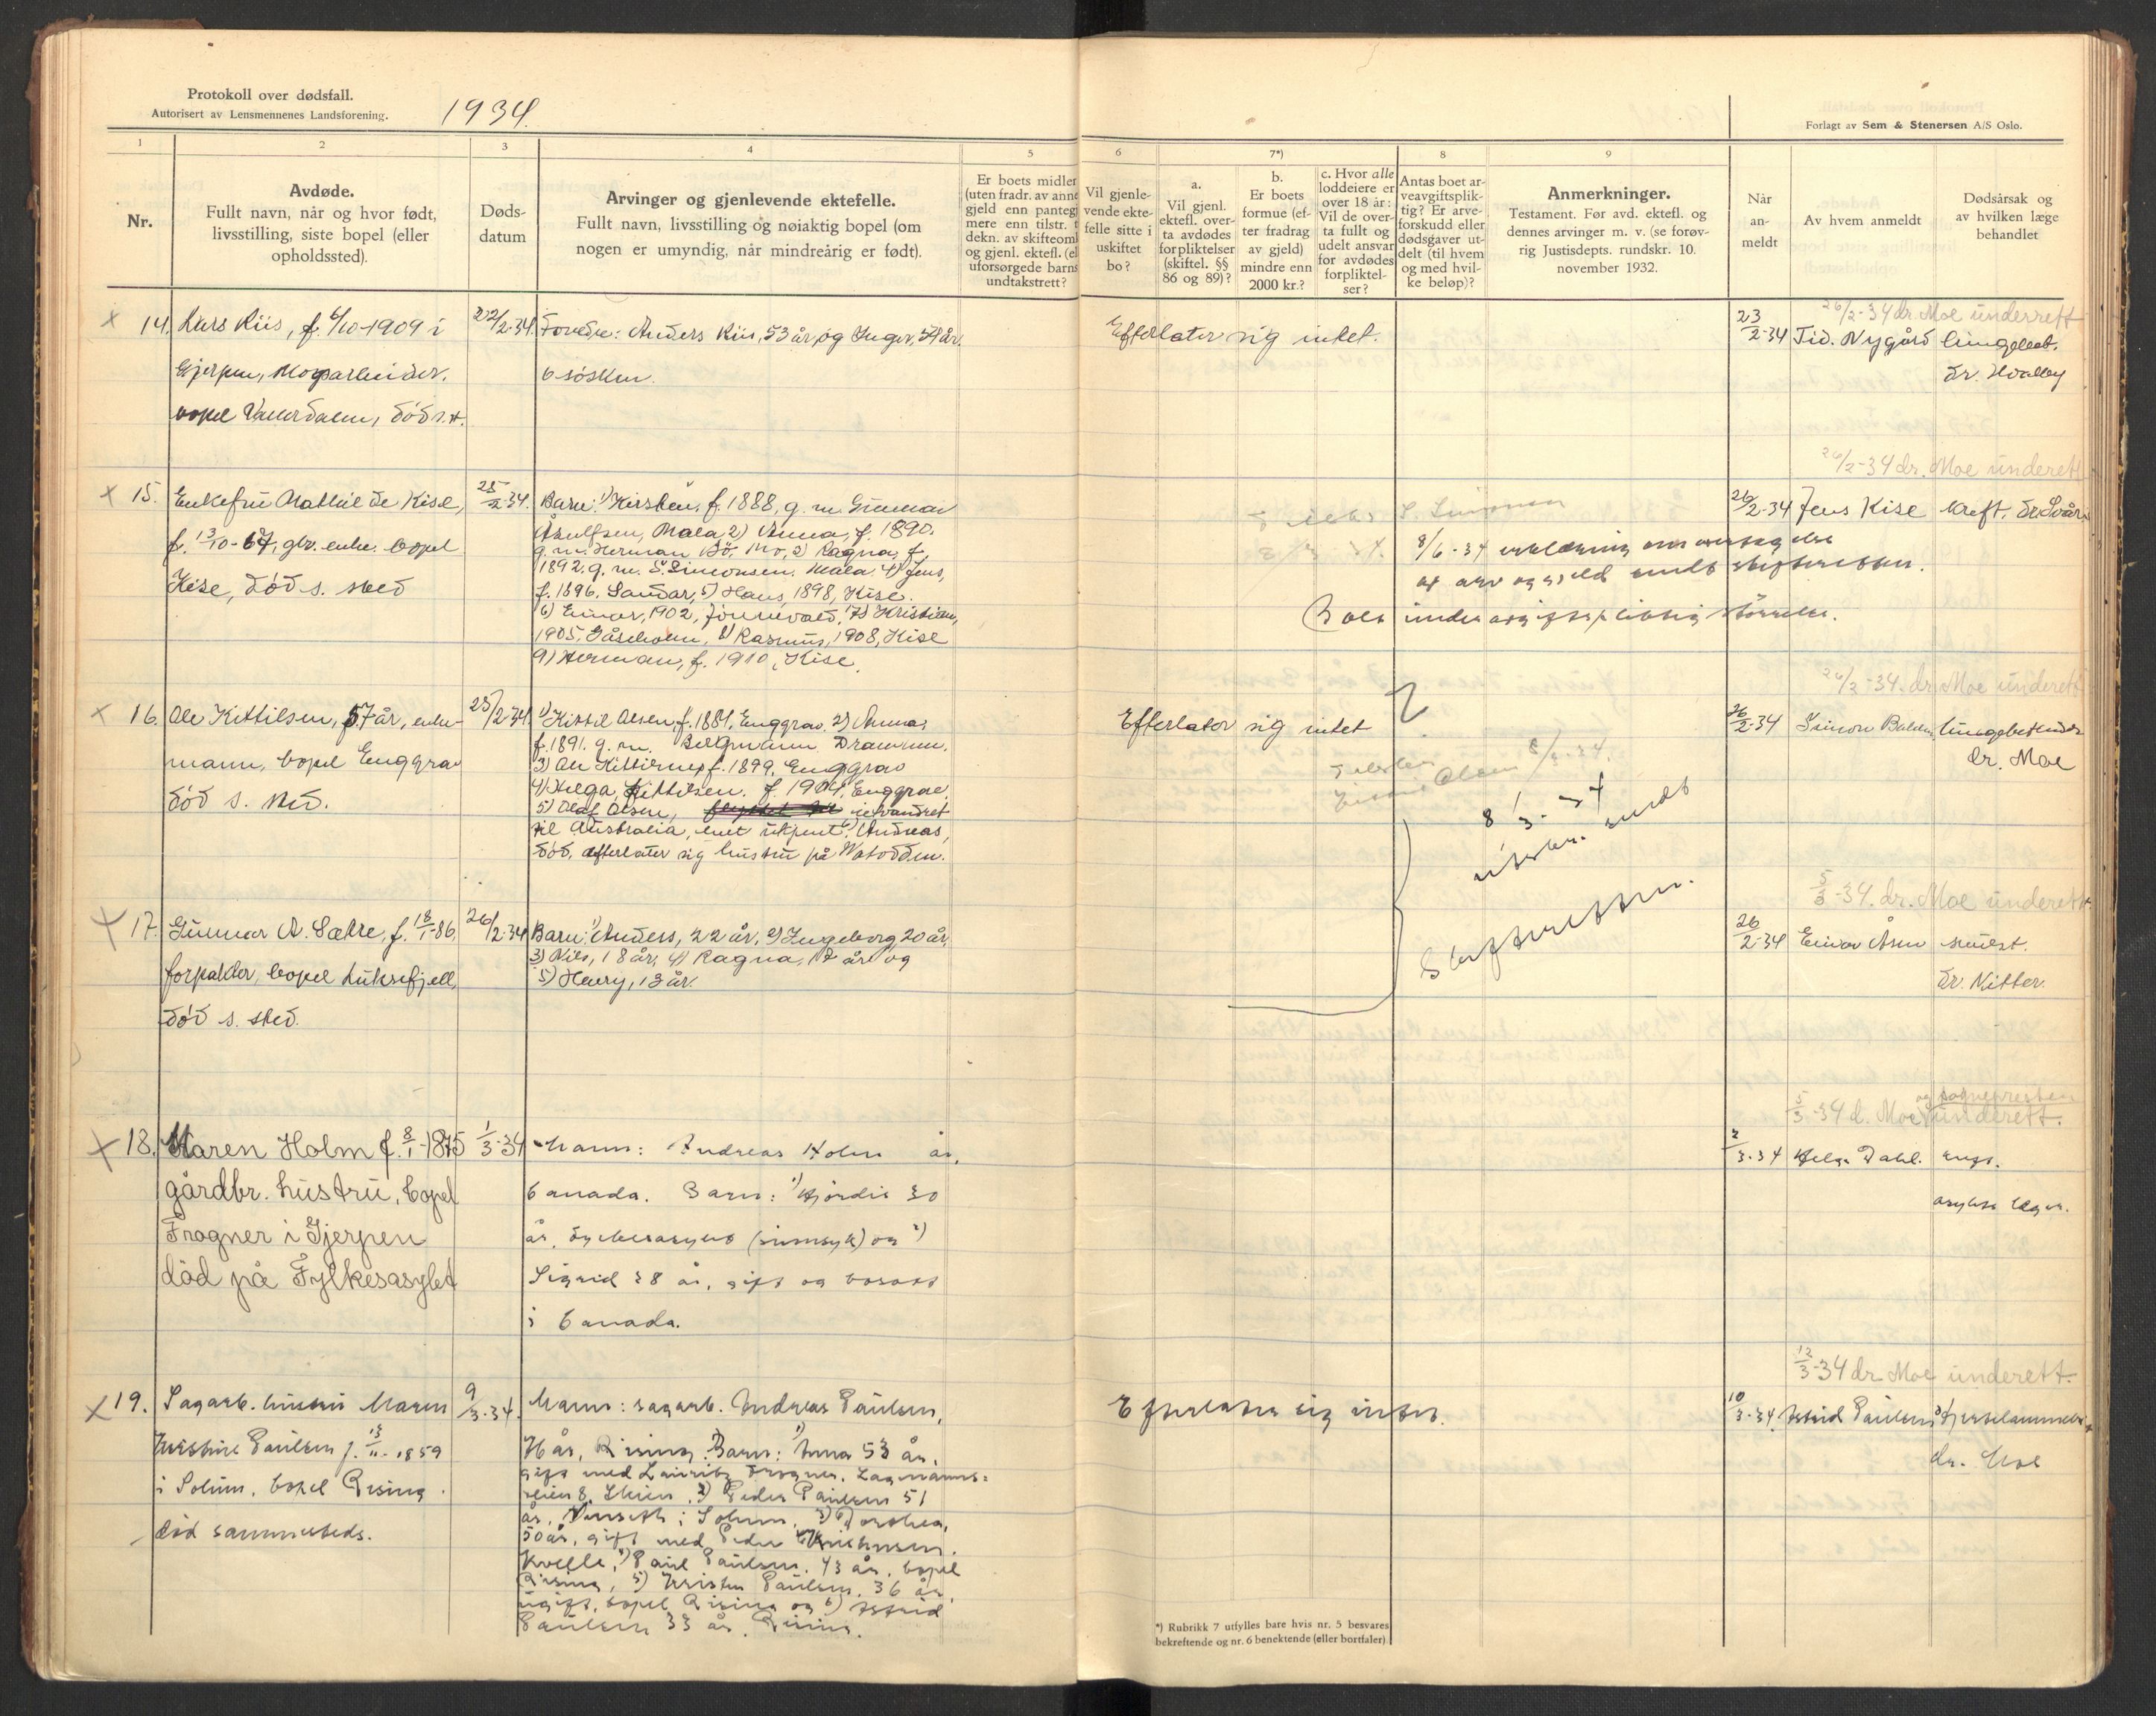 Protokoll over dødsfall.
Autorisert av Lensmennenes Landsforening.
1934.
Forlagt av Sem & Stenersen A/S Oslo.
1
2
3
4
5
6
7*)
8
9
Nr.
Avdøde.
Fullt navn, når og hvor født,
livsstilling, siste bopel (eller
opholdssted).
Døds-
datum
Arvinger og gjenlevende ektefelle.
Fullt navn, livsstilling og nøiaktig bopel (om
nogen er umyndig, når mindreårig er født).
Er boets midler
(uten fradr. av anne
gjeld enn pantegj
mere enn tilstr. t
dekn. av skifteoml
og gjenl. ektefl. (el
uforsørgede barns
undtakstrett?
Vil gjenle-
vende ekte-
felle sitte i
uskiftet
bo?
a.
Vil gjenl.
ektefl. over-
ta avdødes
forpliktelser
(skiftel. §§
86 og 89)?
b.
Er boets
formue (ef-
ter fradrag
av gjeld)
mindre enn
2000 kr.?
c. Hvor alle
loddeiere er
over 18 år:
Vil de over-
ta fullt og
udelt ansvar
for avdødes
forpliktel-
ser?
Antas boet ar-
veavgiftsplik-
tig? Er arve-
forskudd eller
dødsgaver ut-
delt (til hvem
og med hvil-
ke beløp)?
Anmerkninger.
Testament. Før avd. ektefl. og
dennes arvinger m. v. (se forøv-
rig Justisdepts. rundskr. 10.
november 1932.
Når
an-
meldt
Av hvem anmeldt
Dødsårsak og
av hvilken læge
behandlet
26/2-34 dr. Moe underrett
x 14. Lars Riis, f. 6/10-1909 i
Gjerpen,
bopel død s.st.
22/2-34.
Foreldre: Anders Riis, 53 år, og Inger, 54 år.
6 søsken.
Efterlater sig intet.
23/2-34 Tid. Nygård
dr. Hvalby
26/2-34 dr. Moe underett
x 15. Enkefru Mathilde Kise,
f. 13/10-67, gbr. enke. bopel
Kise, død s. sted
25/2-34.
Barn: 1) Kirsten, f. 1888, g. m. Gunnar
Åsulfsen, Mæla, 2) Anna, f. 1890.
g. m. Herman Bö, Mo, 3) Ragna, f.
1892, g. m. S. Simonsen, Mæla. 4) Jens,
f. 1896, Sandar, 5) Hans, 1898, Kise.
6) Einar, 1902, 7) Kristian,
1905, 8) Rasmus, 1908, Kise
9) Herman, f. 1910, Kise.
S. Simonsen
8/6-34 erklæring om overtagelse
av arv og gjeld sendt skifteretten.
Boet under avgiftspliktig størrelse.
26/2-34 Jens Kise kreft.
26/2-34. dr. Moe underett
x 16. Ole Kittilsen, 57 år, enke-
mann, bopel Enggrav
død s. sted.
25/2-34.
1) Kittil Olsen, f. 1881, Enggrav. 2) Anna,
f. 1891. g. m. Bergmann Drammen.
3) Ole Kittilsen, f. 1899, Enggrav
4) Helga Kittilsen. f. 1904, Enggrav.
5) Olaf Olsen, utvandret
til Australia, ellers ukjent. 6) Andreas,
død, efterlater sig hustru på Notodden.
Efterlater sig intet
Olsen 8/3-34.
8/3-34
utskr. sendt
Skifteretten.
26/2-34 Simon
dr. Moe
5/3-34. dr. Moe underett.
x 17. Gunnar A. Sætre, f. 18/1-86,
forpakter, bopel Luksefjell,
død s. sted.
26/2-34
Barn: 1) Anders, 22 år, 2) Ingeborg, 20 år,
3) Nils, 18 år, 4) Ragna, 17 år og
5) Harry, 13 år.
26/2-34 Einar Åsen
dr. Kitter.
og sogneprestene
5/3-34 d. Moe underett.
x 18. Maren Holm f. 8/1-1875
gårdbr. hustru, bopel
Frogner i Gjerpen
död på Fylkesasylet
1/3-34
Mann: Andreas Holm år,
Canada. Barn: 1) Hjördis 30
år, fylkesasylet (sinnsyk) og 2)
Sigrid 28 år, gift og bosatt
i Canada.
2/3-34 Helga Dahl.
asylets læger.
12/3-34 dr Moe underett.
x 19. Sagarb. hustru Maren
Kristine Paulsen f. 13/11-1859
i Solum, bopel Rising
död sammesteds.
9/3-34.
Mann: sagarb. Andreas Paulsen,
76 år, Rising. Barn: 1) Anna 53 år,
gift med Lauritz Frogner, Lagmanns-
veien 8, Skien, 2) Peder Paulsen 51
år, i Solum, 3) Dorthea,
50 år, gift med Peder
Kvelle, 4) Paul Paulsen. 43 år. bopel
Rising, 5) Kristen Paulsen, 36 år,
ugift, bopel Rising og 6) Astrid
Paulsen 33 år, Rising.
Efterlater sig intet.
10/3-34. Astrid Paulsen Hjertelammelse
dr. Moe
*) Rubrikk 7 utfylles bare hvis nr. 5 besvares
bekreftende og nr. 6 benektende (eller bortfaler)